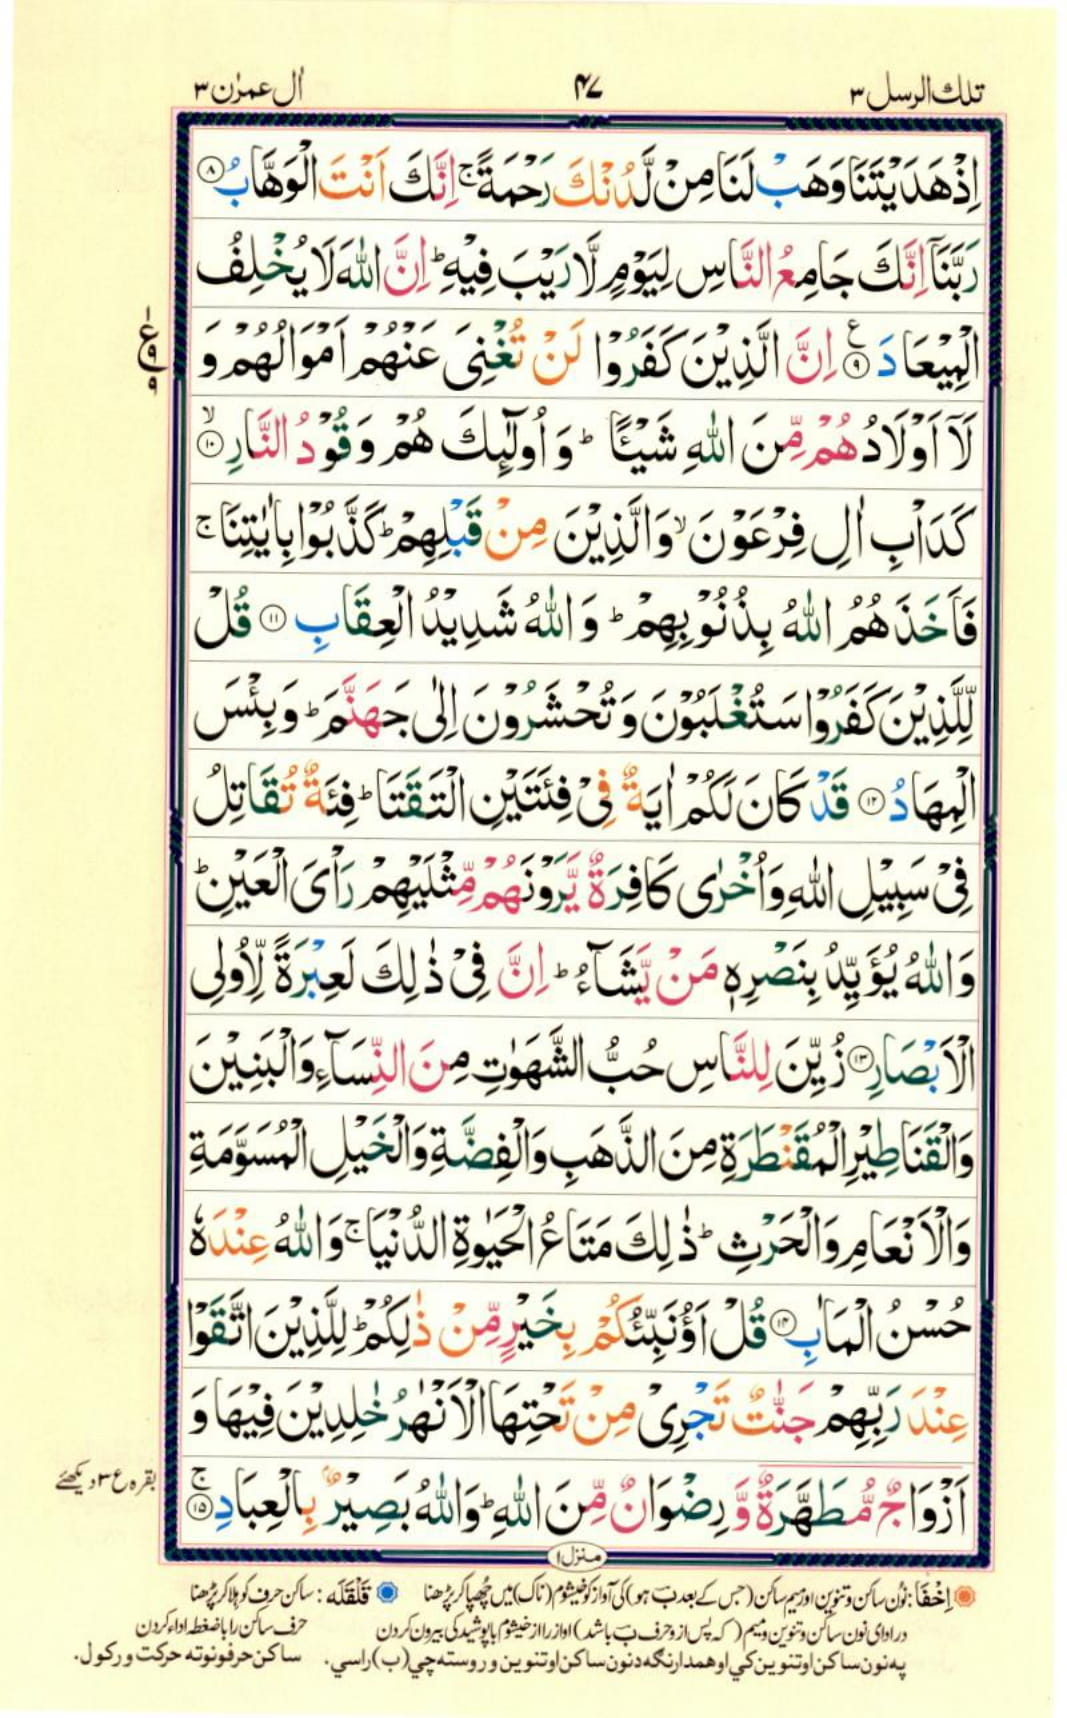 تلك الرسل ٣ ٤٧ اٰل عمرٰن ٣
اِذْ هَدَيْتَنَا وَهَبْ لَنَا مِنْ لَّدُنْكَ رَحْمَةً ۚ اِنَّكَ اَنْتَ الْوَهَّابُ ۝٨
رَبَّنَاۤ اِنَّكَ جَامِعُ النَّاسِ لِيَوْمٍ لَّا رَيْبَ فِيْهِ ؕ اِنَّ اللّٰهَ لَا يُخْلِفُ
الْمِيْعَادَ ۝٩ ع اِنَّ الَّذِيْنَ كَفَرُوْا لَنْ تُغْنِىَ عَنْهُمْ اَمْوَالُهُمْ وَ
ع ٩ ٩
لَاۤ اَوْلَادُهُمْ مِّنَ اللّٰهِ شَيْـًٔا ؕ وَ اُولٰٓئِكَ هُمْ وَقُوْدُ النَّارِ ۙ ۝١٠
كَدَاْبِ اٰلِ فِرْعَوْنَ ۙ وَالَّذِيْنَ مِنْ قَبْلِهِمْ ؕ كَذَّبُوْا بِاٰيٰتِنَا ۚ
فَاَخَذَهُمُ اللّٰهُ بِذُنُوْبِهِمْ ؕ وَ اللّٰهُ شَدِيْدُ الْعِقَابِ ۝١١ قُلْ
لِّلَّذِيْنَ كَفَرُوْا سَتُغْلَبُوْنَ وَ تُحْشَرُوْنَ اِلٰى جَهَنَّمَ ؕ وَ بِئْسَ
الْمِهَادُ ۝١٢ قَدْ كَانَ لَكُمْ اٰيَةٌ فِىْ فِئَتَيْنِ الْتَقَتَا ؕ فِئَةٌ تُقَاتِلُ
فِىْ سَبِيْلِ اللّٰهِ وَاُخْرٰى كَافِرَةٌ يَّرَوْنَهُمْ مِّثْلَيْهِمْ رَاْىَ الْعَيْنِ ؕ
وَ اللّٰهُ يُؤَيِّدُ بِنَصْرِهٖ مَنْ يَّشَآءُ ؕ اِنَّ فِىْ ذٰلِكَ لَعِبْرَةً لِّاُولِى
الْاَبْصَارِ ۝١٣ زُيِّنَ لِلنَّاسِ حُبُّ الشَّهَوٰتِ مِنَ النِّسَآءِ وَالْبَنِيْنَ
وَالْقَنَاطِيْرِ الْمُقَنْطَرَةِ مِنَ الذَّهَبِ وَالْفِضَّةِ وَالْخَيْلِ الْمُسَوَّمَةِ
وَالْاَنْعَامِ وَالْحَرْثِ ؕ ذٰلِكَ مَتَاعُ الْحَيٰوةِ الدُّنْيَا ۚ وَاللّٰهُ عِنْدَهٗ
حُسْنُ الْمَاٰبِ ۝١٤ قُلْ اَؤُنَبِّئُكُمْ بِخَيْرٍ مِّنْ ذٰلِكُمْ ؕ لِلَّذِيْنَ اتَّقَوْا
عِنْدَ رَبِّهِمْ جَنّٰتٌ تَجْرِىْ مِنْ تَحْتِهَا الْاَنْهٰرُ خٰلِدِيْنَ فِيْهَا وَ
اَزْوَاجٌ مُّطَهَّرَةٌ وَّ رِضْوَانٌ مِّنَ اللّٰهِ ؕ وَاللّٰهُ بَصِيْرٌۢ بِالْعِبَادِ ۚ ۝١٥
بقره ع ٣ دیکھئے
منزل ١
اِخْفَا: نُون ساکن و تنوین اور میم ساکن (جس کے بعد ب ہو) کی آواز کو خیشوم (ناک) میں چُھپا کر پڑھنا قَلْقَلَه: ساکن حرف کو ہلا کر پڑھنا
در ادای نون ساکن و تنوین و میم (که پس از و حرف ب باشد) آواز را از خیشوم با پوشیدگی بیرون کردن حرف ساکن را با ضغطه اداء کردن
په نون ساکن او تنوین کي او همدارنګه د نون ساکن او تنوین وروسته چي (ب) راسي. ساکن حرفونو ته حرکت ورکول.